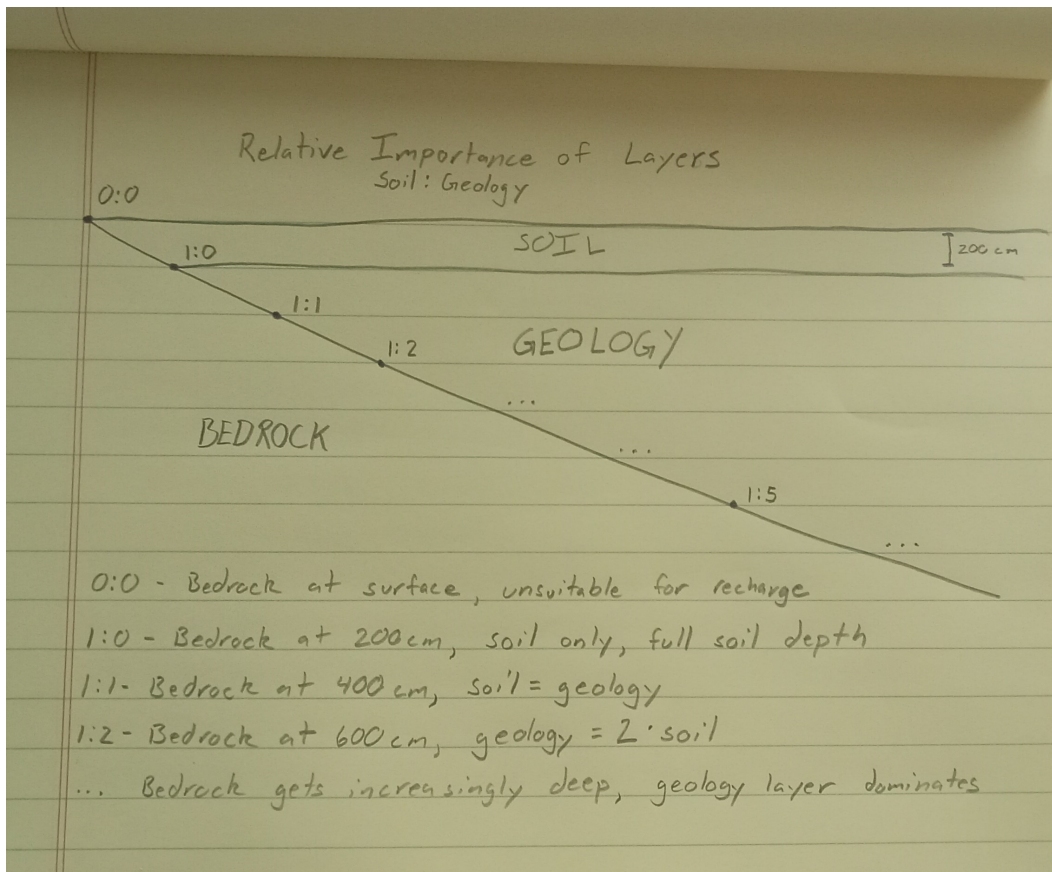 Relative Importance of Layers
Soil: Geology
0:0
SOIL
200 cm
1:0
1:1
GEOLOGY
1:2
...
BEDROCK
...
1:5
...
0:0 - Bedrock at surface, unsuitable for recharge
1:0 - Bedrock at 200cm, soil only, full soil depth
1:1- Bedrock at 400 cm, soil = geology
1:2 - Bedrock at 600 cm, geology = 2·soil
... Bedrock gets increasingly deep, geology layer dominates